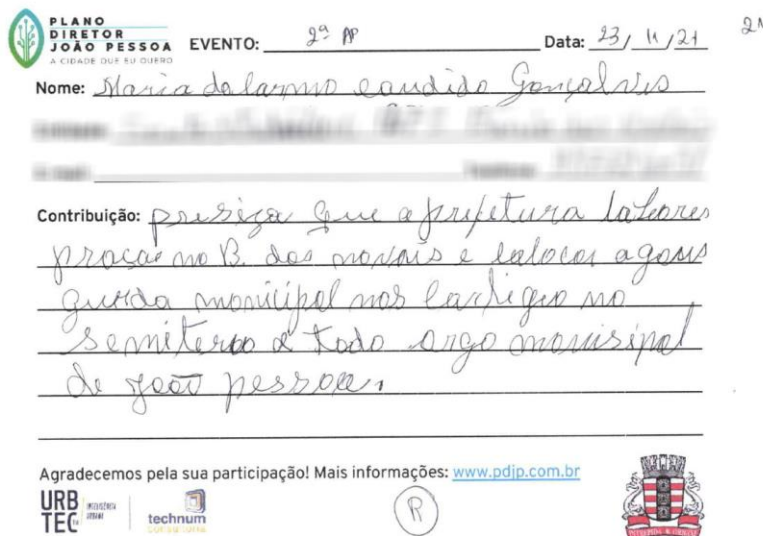 PLANO
DIRETOR
JOÃO PESSOA
A CIDADE QUE EU QUERO
EVENTO: 2ª AP
Data: 23/11/21
Nome: Maria do Carmo Candido Gonçalves
Contribuição: presiza que a prefetura
praças no B. dos novais e colocar
municipal nos no
semiterio e todo orgo monisipal
de joão pessoa.
Agradecemos pela sua participação! Mais informações: www.pdjp.com.br
URB
TEC
INTELIGÊNCIA
URBANA
technum
CONSULTORIA
R